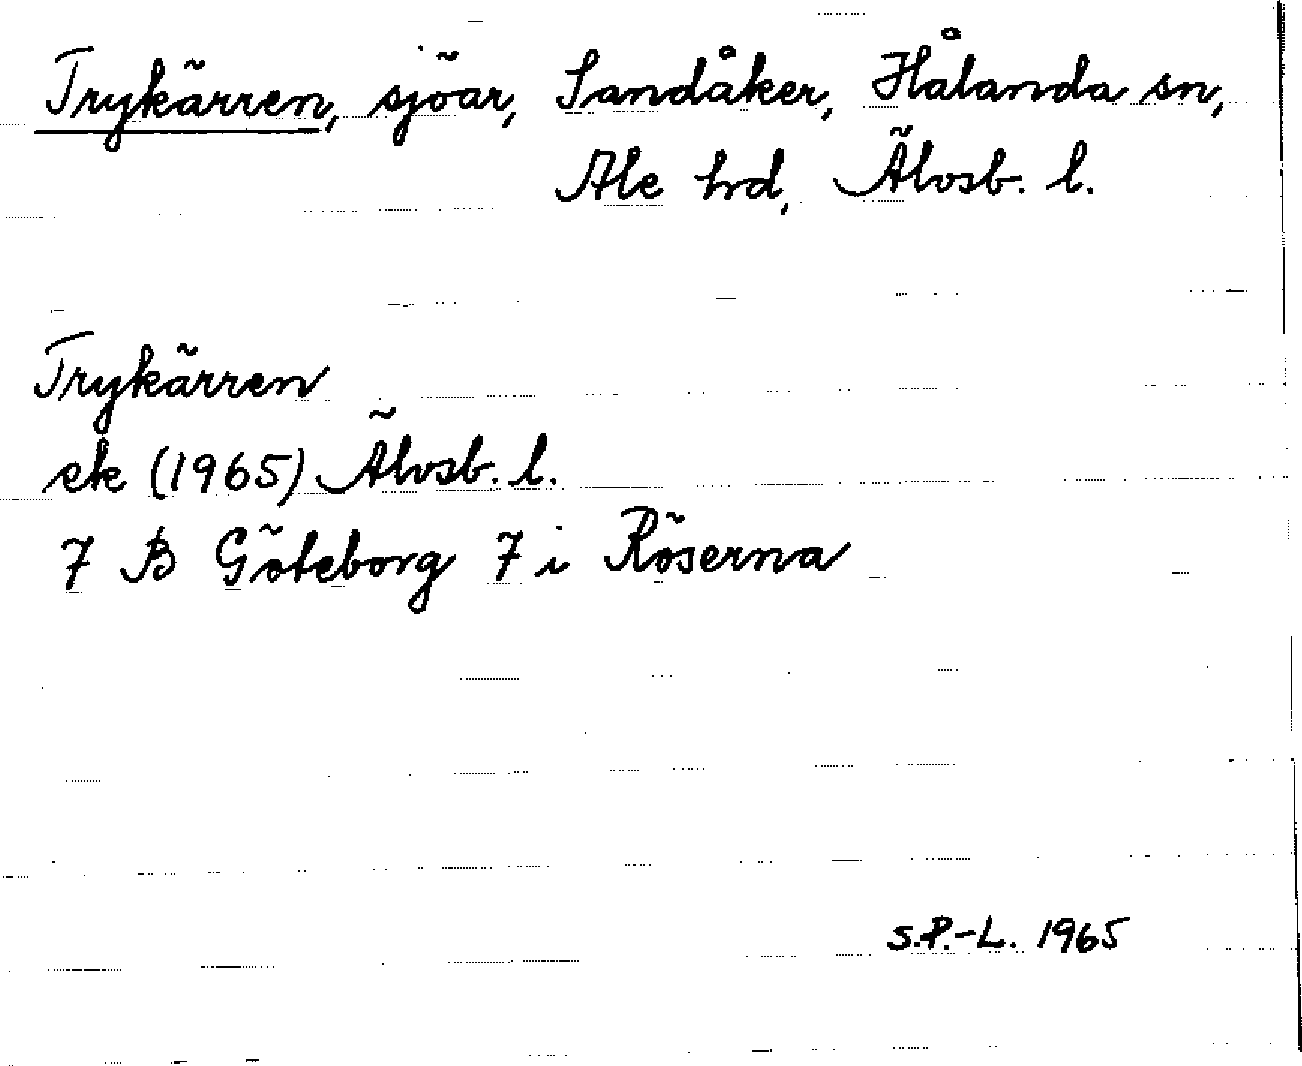 Trykärren, sjöar, Sandåker, Hålanda sn,
Ale hd, Älvsb. l.
Trykärren
ek (1965) Älvsb. l.
7 B Göteborg 7 i Röserna
S.P.-L. 1965